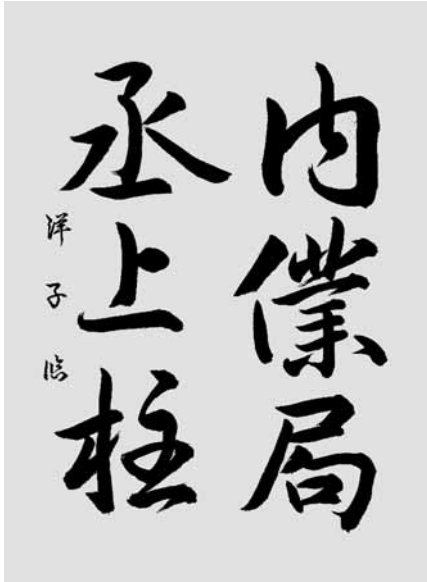 内僕局
丞上柱
洋子臨